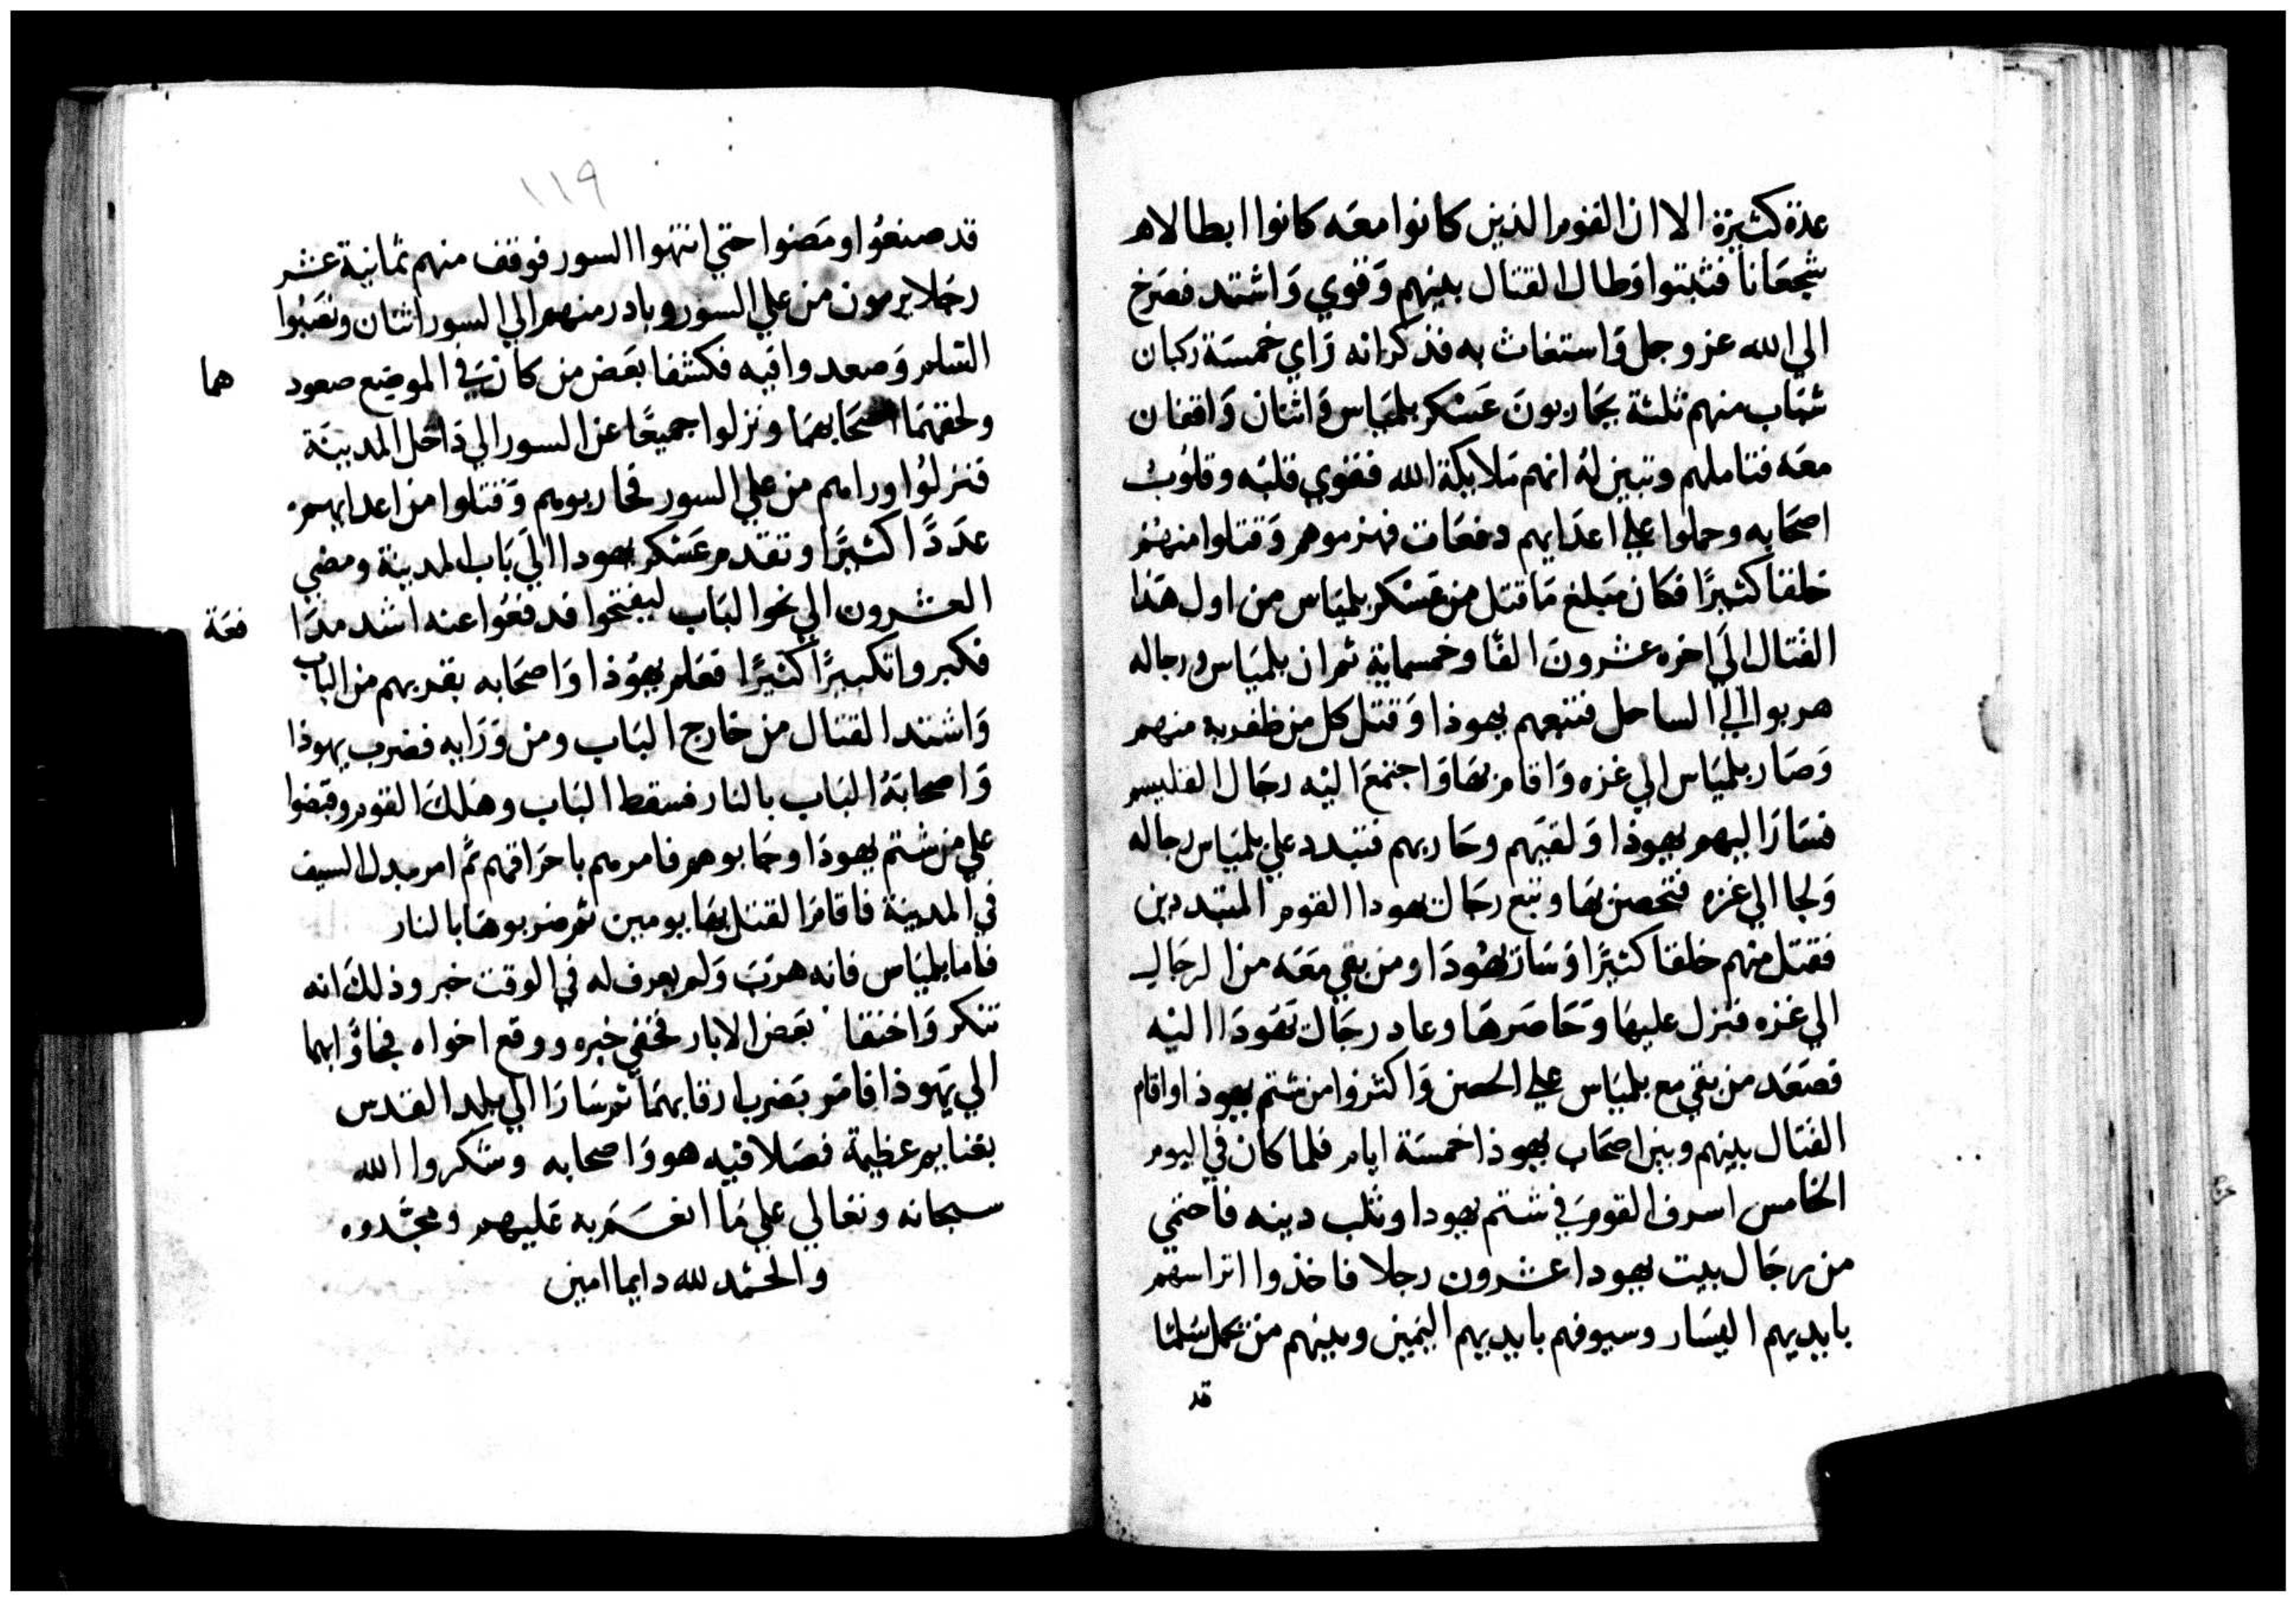 عدة كثيرة الا ان القوم الذين كانوا معه كانوا ابطالا
شجعانا فثبتوا وطال القتال بينهم وقوي واشتد فصرخ
الي الله عز وجل واستغاث به فذكر انه راي خمسة ركبان
شباب منهم ثلثة يحاربون عسكر بلمياس واثنان واقفان
معه فتاملهم وتبين له انهم ملايكة الله فقوي قلبه وقلوب
اصحابه وحملوا علي اعدايهم دفعات فهزموهم وقتلوا منهم
خلقا كثيرا فكان مبلغ ما قتل من عسكر بلمياس من اول هذا
القتال الي اخره عشرون الفا وخمسماية ثم ان بلمياس ورجاله
هربوا الي الساحل فتبعهم يهوذا وقتل كل من ظفر به منهم
وصار بلمياس الي غزه واقام بها واجتمع اليه رجال الفليسم
فسار اليهم يهوذا ولقيهم وحاربهم فتبدد علي بلمياس رجاله
ولجا الي غزه فتحصن بها وتبع رجال يهودا القوم المتبددين
فقتل منهم خلقا كثيرا وسار يهودا ومن بقي معه من الرجال
الي غزه فنزل عليها وحاصرها وعاد رجال يهودا اليه
فصعد من بقي مع بلمياس علي الحصن واكثروا من شتم يهوذا واقام
القتال بينهم وبين اصحاب يهوذا خمسة ايام فلما كان في اليوم
الخامس اسرف القوم في شتم يهودا وثلب دينه فاحتمي
من رجال بيت يهودا عشرون رجلا فاخذوا اتراسهم
بايديهم اليسار وسيوفهم بايديهم اليمين وبينهم من يحمل سلما
قد
١١٩
قد صنعوا ومضوا حتي انتهوا السور فوقف منهم ثمانية عشر
رجلا يرمون من علي السور وبادر منهم الي السور اثنان ونصبوا
السلم وصعدوا فيه فكشفا بعض من كان في الموضع صعود هما
ولحقهما اصحابهما ونزلوا جميعا عن السور الي داخل المدينة
فنزلوا ورامم من علي السور فحاربوهم وقتلوا من اعدايهم
عددا كثيرا وتقدم عسكر يهودا الي باب المدينة ومضي
العشرون الي نحو الباب ليفتحوا فدفعوا عنه اشد مدا فعة
فكبروا تكبيرا كثيرا فعلم يهوذا واصحابه بقربهم من الباب
واشتد القتال من خارج الباب ومن ورايه فضرب يهوذا
واصحابه الباب بالنار فسقط الباب وهلك القوم وقبضوا
علي من شتم يهوذا وجابوهم فامر بهم باحراقهم ثم امر ببدل السيف
في المدينة فاقام القتل بها يومين ثم ضربوها بالنار
فاما بلمياس فانه هرب ولم يعرف له في الوقت خبر وذلك انه
تنكر واختفا بعض الابار فخفي خبره ووقع اخواه فجاوا بهما
الي يهوذا فامر بضرب رقابهما ثم سارا الي بلد القدس
بغنايم عظيمة فصلا فيه هو واصحابه وشكروا الله
سبحانه وتعالي علي ما انعم به عليهم ومجدوه
والحمد لله دايما امين